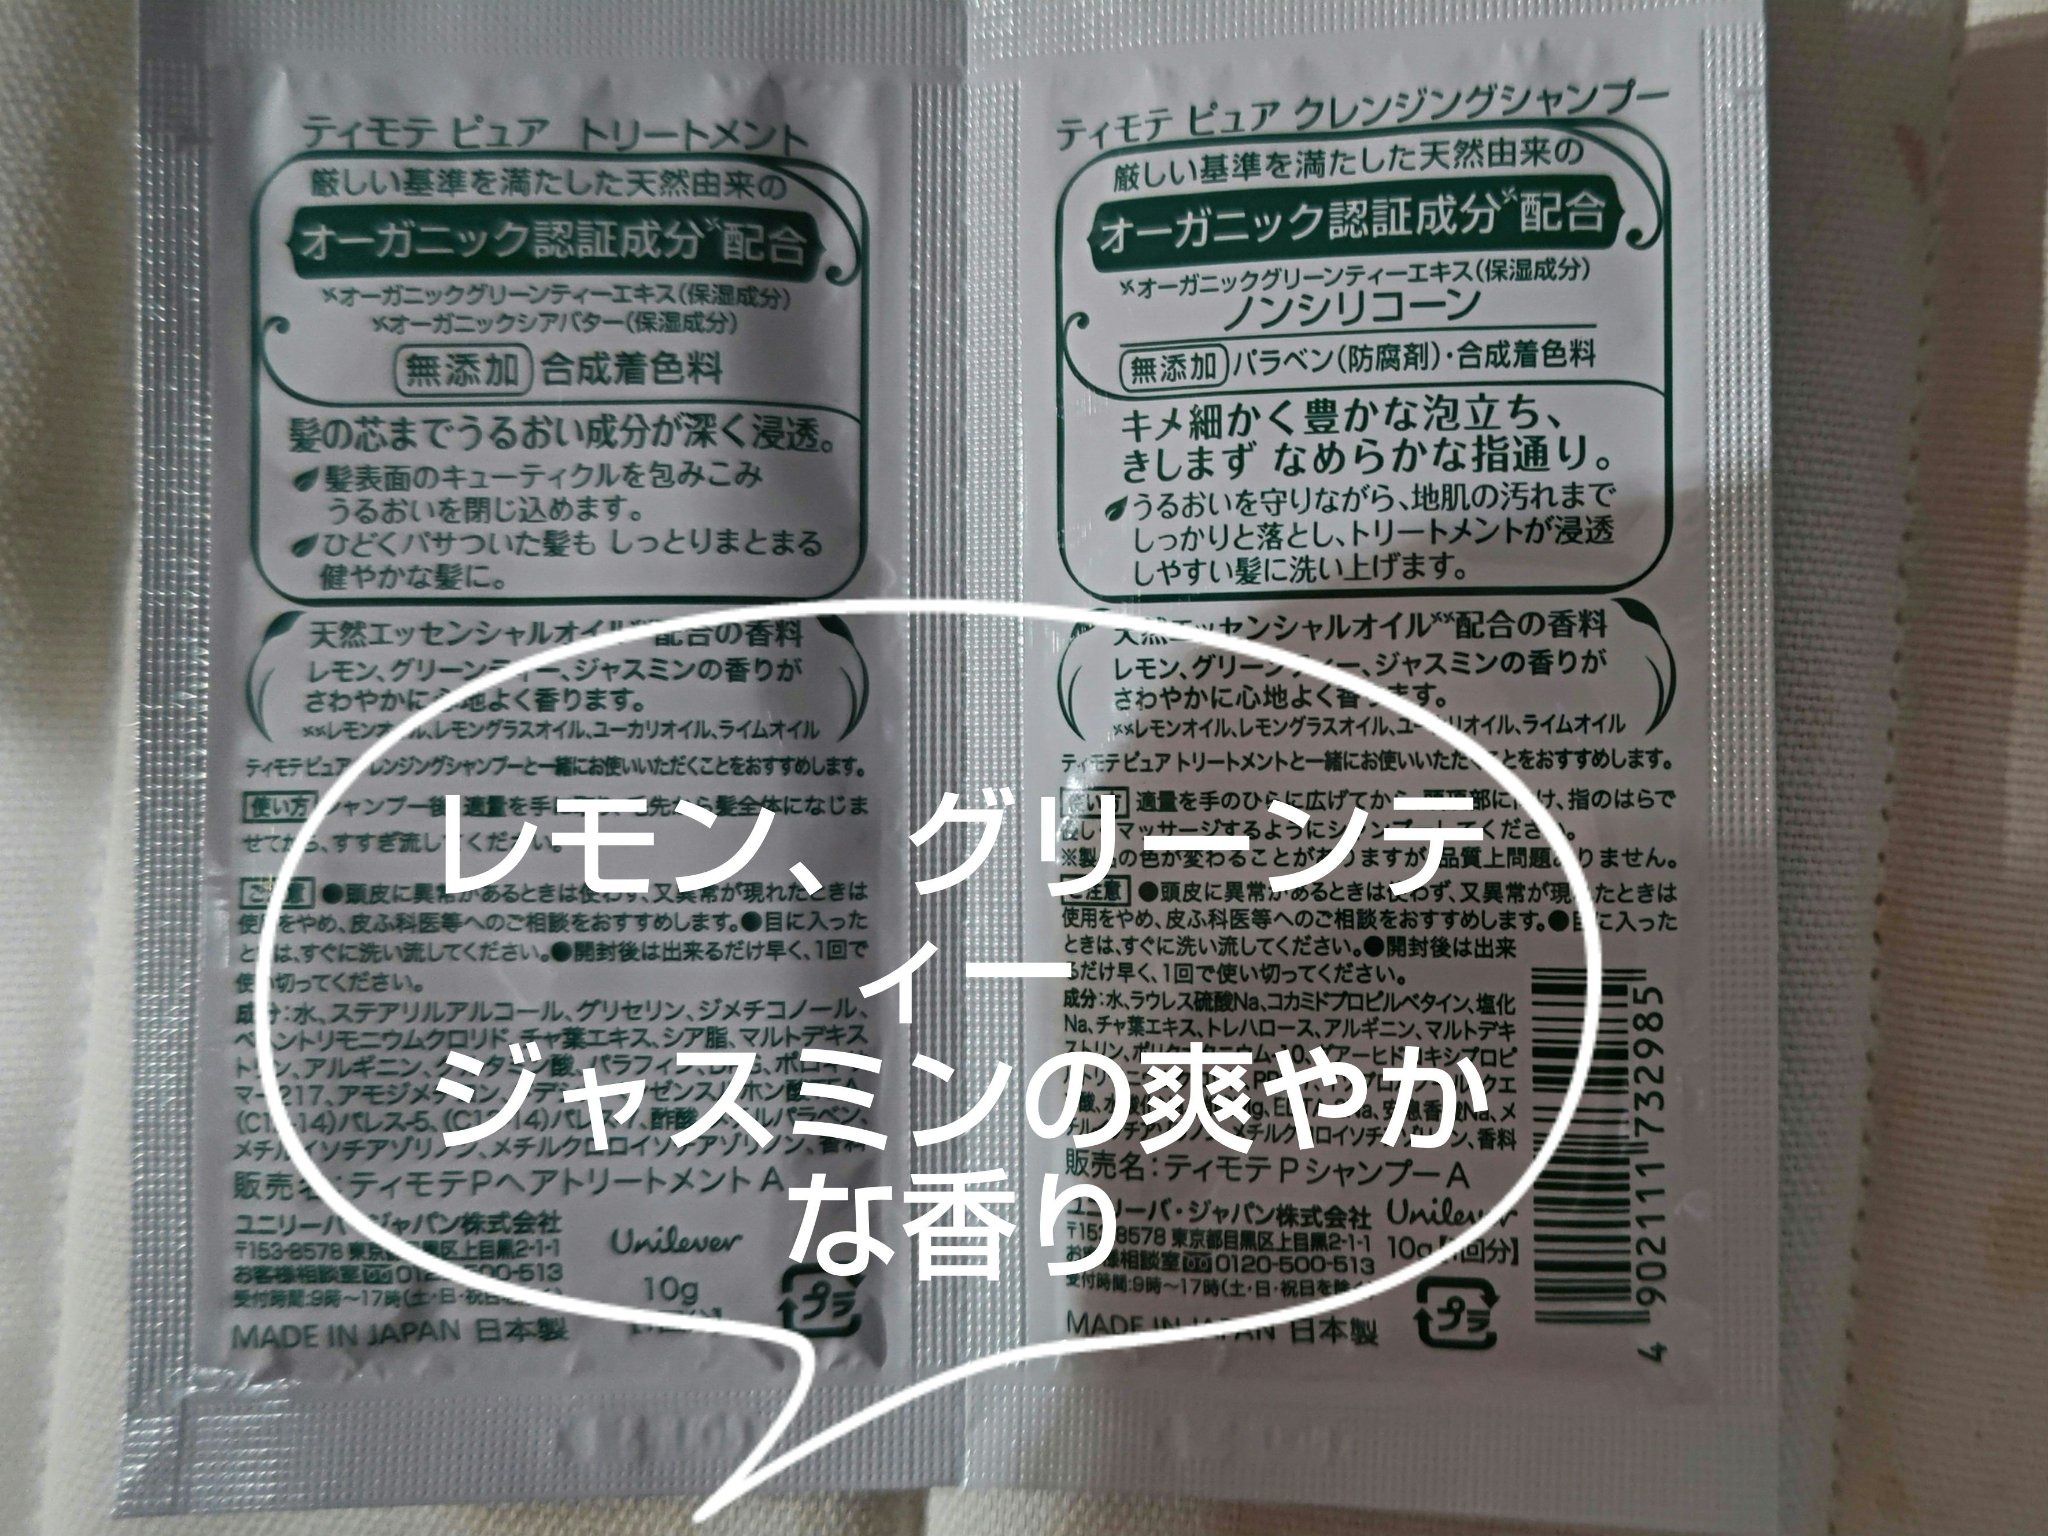 ティモテ ピュア トリートメント
厳しい基準を満たした天然由来の
オーガニック認証成分※配合
※オーガニックグリーンティーエキス(保湿成分)
※オーガニックシアバター(保湿成分)
無添加 合成着色料
髪の芯までうるおい成分が深く浸透。
髪表面のキューティクルを包みこみ
うるおいを閉じ込めます。
ひどくパサついた髪も しっとりまとまる
健やかな髪に。
天然エッセンシャルオイル※※配合の香料
レモン、グリーンティー、ジャスミンの香りが
さわやかに心地よく香ります。
※※レモンオイル、レモングラスオイル、ユーカリオイル、ライムオイル
ティモテ ピュア クレンジングシャンプーと一緒にお使いいただくことをおすすめします。
使い方 シャンプー後、適量を手に 毛先から髪全体になじま
せてから、すすぎ流してください。
ご注意 ●頭皮に異常があるときは使わず、又異常が現れたときは
使用をやめ、皮ふ科医等へのご相談をおすすめします。●目に入った
ときは、すぐに洗い流してください。●開封後は出来るだけ早く、1回で
使い切ってください。
成分:水、ステアリルアルコール、グリセリン、ジメチコノール、
ベヘントリモニウムクロリド、チャ葉エキス、シア脂、マルトデキス
トリン、アルギニン、グルタミン酸、パラフィン、
マー217、アモジメチコン、
(C12-14)パレス-5、(C12-14)パレス-7、酢酸、メチルパラベン、
メチルイソチアゾリノン、メチルクロロイソチアゾリノン、香料
販売名:ティモテPヘアトリートメントA
ユニリーバ・ジャパン株式会社
〒153-8578 東京都目黒区上目黒2-1-1
お客様相談室 0120-500-513
受付時間:9時〜17時(土・日・祝日を除く)
MADE IN JAPAN 日本製
Unilever
10g
【1回分】
プラ
ティモテ ピュア クレンジングシャンプー
厳しい基準を満たした天然由来の
オーガニック認証成分※配合
※オーガニックグリーンティーエキス(保湿成分)
ノンシリコーン
無添加 パラベン(防腐剤)・合成着色料
キメ細かく豊かな泡立ち、
きしまず なめらかな指通り。
うるおいを守りながら、地肌の汚れまで
しっかりと落とし、トリートメントが浸透
しやすい髪に洗い上げます。
天然エッセンシャルオイル※※配合の香料
レモン、グリーンティー、ジャスミンの香りが
さわやかに心地よく香ります。
※※レモンオイル、レモングラスオイル、ユーカリオイル、ライムオイル
ティモテ ピュア トリートメントと一緒にお使いいただくことをおすすめします。
使い方 適量を手のひらに広げてから、頭頂部に付け、指のはらで
優しくマッサージするようにシャンプーしてください。
※製品の色が変わることがありますが、品質上問題ありません。
ご注意 ●頭皮に異常があるときは使わず、又異常が現れたときは
使用をやめ、皮ふ科医等へのご相談をおすすめします。●目に入った
ときは、すぐに洗い流してください。●開封後は出来
るだけ早く、1回で使い切ってください。
成分:水、ラウレス硫酸Na、コカミドプロピルベタイン、塩化
Na、チャ葉エキス、トレハロース、アルギニン、マルトデキ
ストリン、ポリクオタニウム-10、グアーヒドロキシプロピ
ルトリモニウムクロリド、
安息香酸Na、メ
チルイソチアゾリノン、メチルクロロイソチアゾリノン、香料
販売名:ティモテPシャンプーA
ユニリーバ・ジャパン株式会社
〒153-8578 東京都目黒区上目黒2-1-1
お客様相談室 0120-500-513
受付時間:9時〜17時(土・日・祝日を除く)
MADE IN JAPAN 日本製
Unilever
10g【1回分】
プラ
4902111732985
レモン、グリーンテ
ィー
ジャスミンの爽やか
な香り